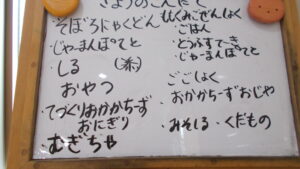 きょうのこんだて
・そぼろにゃくどん
・じゃーまんぽてと
・しる (米)
おやつ
・てづくりおかかちーず
おにぎり
・むぎちゃ
・ごはん
・とうふすてーき
・じゃーまんぽてと
ごごしょく
・おかかちーずおじや
・みそしる ・くだもの